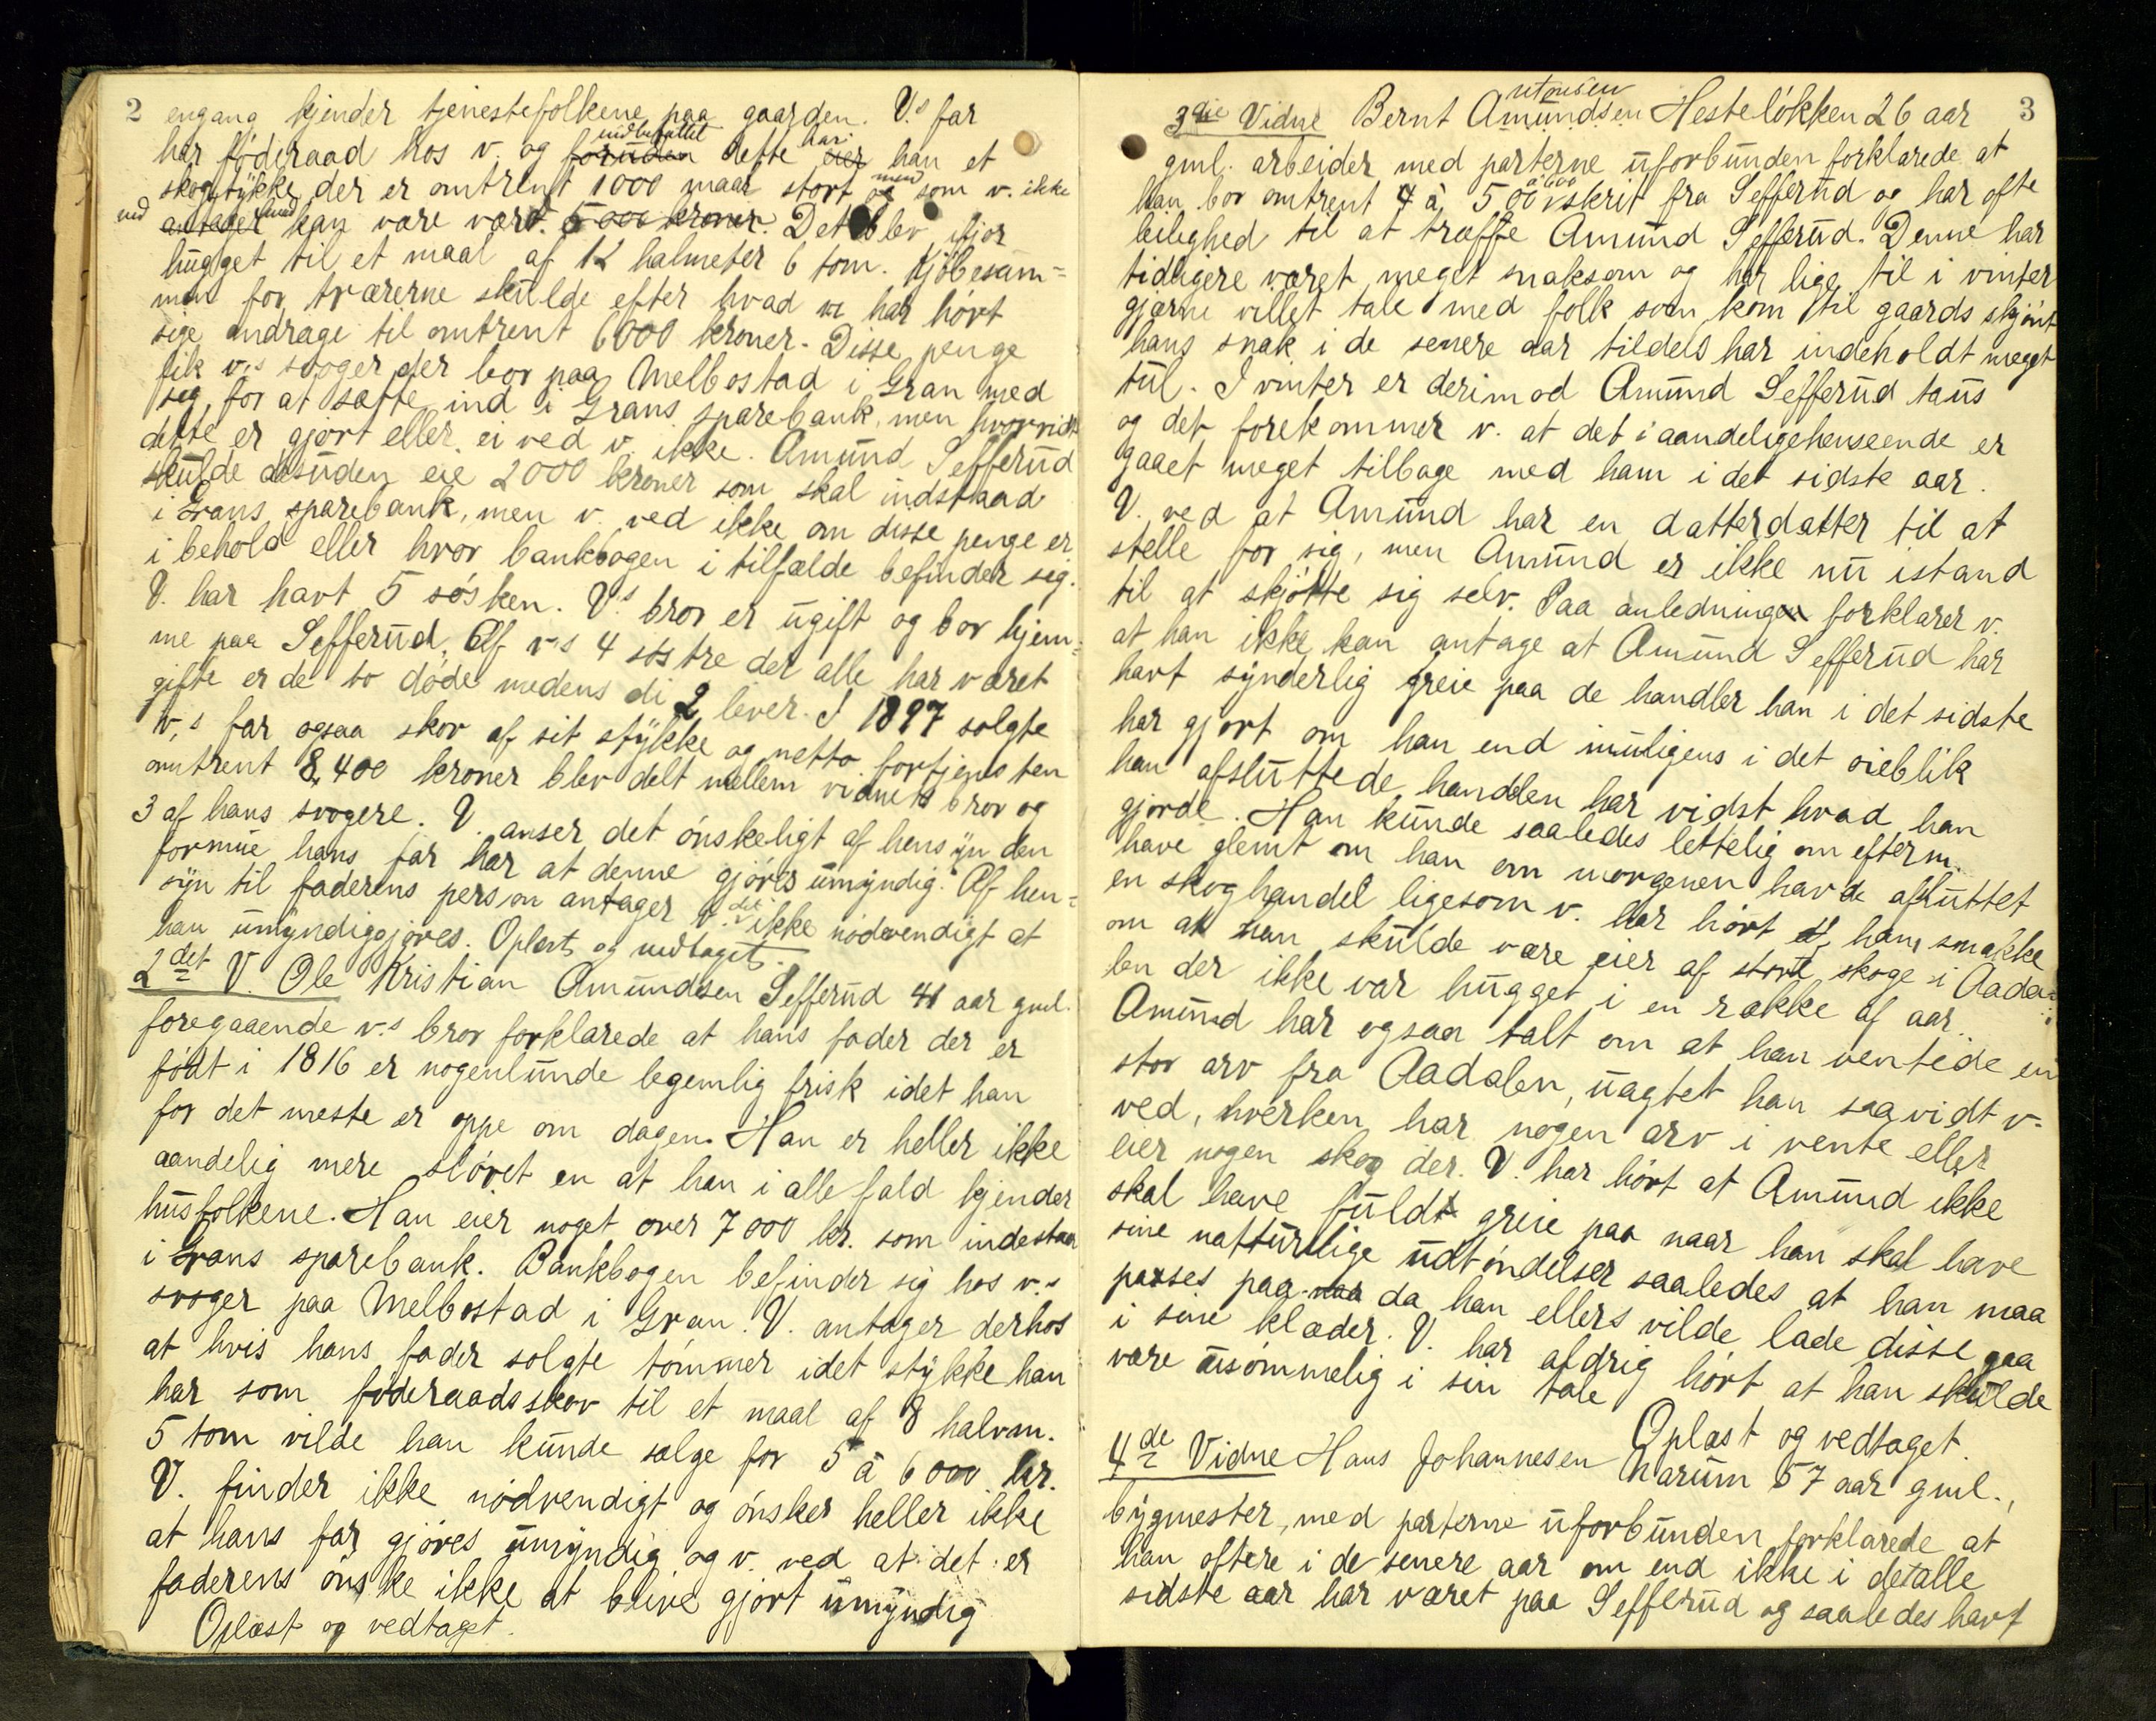 2
engang kjender tjenestefolkene paa gaarden. V.s far
har föderaad hos v. og foruden indbefattet dette eier har han et
skogstykke der er omtrent 1000 maal stort og men som v. ikke
ved antager hvad kan være værd. 5000 kroner. Det blev ifjor
hugget til et maal af 12 halmeter 6 tom. Kjöbesum=
men for trærerne skulde efter hvad v. har hört
sige andrage til omtrent 6000 kroner. Disse penge
fik v.s svoger der bor paa Melbostad i Gran med
sig for at sætte ind i Grans sparebank, men hvorvidt
dette er gjort eller ei ved v. ikke. Amund Sefferud
skulde desuden eie 2000 kroner som skal indstaad
i Grans sparebank, men v. ved ikke om disse penge er
i behold eller hvor bankbogen i tilfælde befinder sig.
V. har havt 5 sösken. V.s bror er ugift og bor hjem=
me paa Sefferud. Af v.s 4 söstre der alle har været
gifte er de to döde medens di 2 lever. I 1897 solgte
v.s far ogsaa skov af sit stykke og netto fortjensten
omtrent 8,400 kroner blev delt mellem vidnets bror og
3 af hans svogere. V. anser det önskeligt af hensyn den
formue hans far har at denne gjöres umyndig. Af hen=
syn til faderens person antager v. det ikke nödvendigt at
han umyndiggjöres. Oplæst og vedtaget.
2det V. Ole Kristian Amundsen Sefferud 41 aar gml.
foregaaende v.s bror forklarede at hans fader der er
födt i 1816 er nogenlunde legemlig frisk idet han
for det meste er oppe om dagen. Han er heller ikke
aandelig mere slövet en at han i alle fald kjender
husfolkene. Han eier noget over 7000 kr. som indestaa
i Grans sparebank. Bankbogen befinder sig hos v.s
svoger paa Melbostad i Gran. V. antager derhos
at hvis hans fader solgte tömmer idet stykke han
har som föderaadsskov til et maal af 8 halvm.
5 tom vilde han kunde sælge for 5 à 6000 kr.
V. finder ikke nödvendigt og önsker heller ikke
at hans far gjöres umyndig og v. ved at det er
faderens önske ikke at blive gjort umyndig
Oplæst og vedtaget.
3
3die Vidne Bernt Amundsen Hestelökken 26 aar
gml. arbeider med parterne uforbunden forklarede at
han bor omtrent 4 à 500 à 600 skrit fra Sefferud og har ofte
leilighed til at træffe Amund Sefferud. Denne har
tidligere været meget snaksom og har lige til i vinter
gjærne villet tale med folk som kom til gaards skjönt
hans snak i de senere aar tildels har indeholdt meget
tul. I vinter er derimod Amund Sefferud taus
og det forekommer v. at det i aandeligehenseende er
gaaet meget tilbage med ham i det sidste aar.
V. ved at Amund har en datterdatter til at
stelle for sig, men Amund er ikke nu istand
til at skjötte sig selv. Paa anledningen forklarer v.
at han ikke kan antage at Amund Sefferud har
havt synderlig greie paa de handler han i det sidste
har gjort om han end muligens i det oieblik
han afsluttede handelen har vidst hvad han
gjorde. Han kunde saaledes lettelig om efterm.
have glemt om han om morgenen havde afsluttet
en skoghandel ligesom v. har hört ham snakke
om at han skulde være eier af store skoge i Aada=
len der ikke var hugget i en række af aar.
Amund har ogsaa talt om at han ventede en
stor arv fra Aadalen, uagtet han saavidt v.
ved, hverken har nogen arv i vente eller
eier nogen skog der. V. har hört at Amund ikke
skal have fuldt greie paa naar han skal have
sine natturlige udtöndelser saaledes at han maa
passes paa naa da han ellers vilde lade disse gaa
i sine klæder. V. har aldrig hört at han skulde
være usömmelig i sin tale
Oplæst og vedtaget.
4de Vidne Hans Johannesen Narum 57 aar gml.,
bygmester, med parterne uforbunden forklarede at
han oftere i de senere aar om end ikke i detalle
sidste aar har været paa Sefferud og saaledes havt